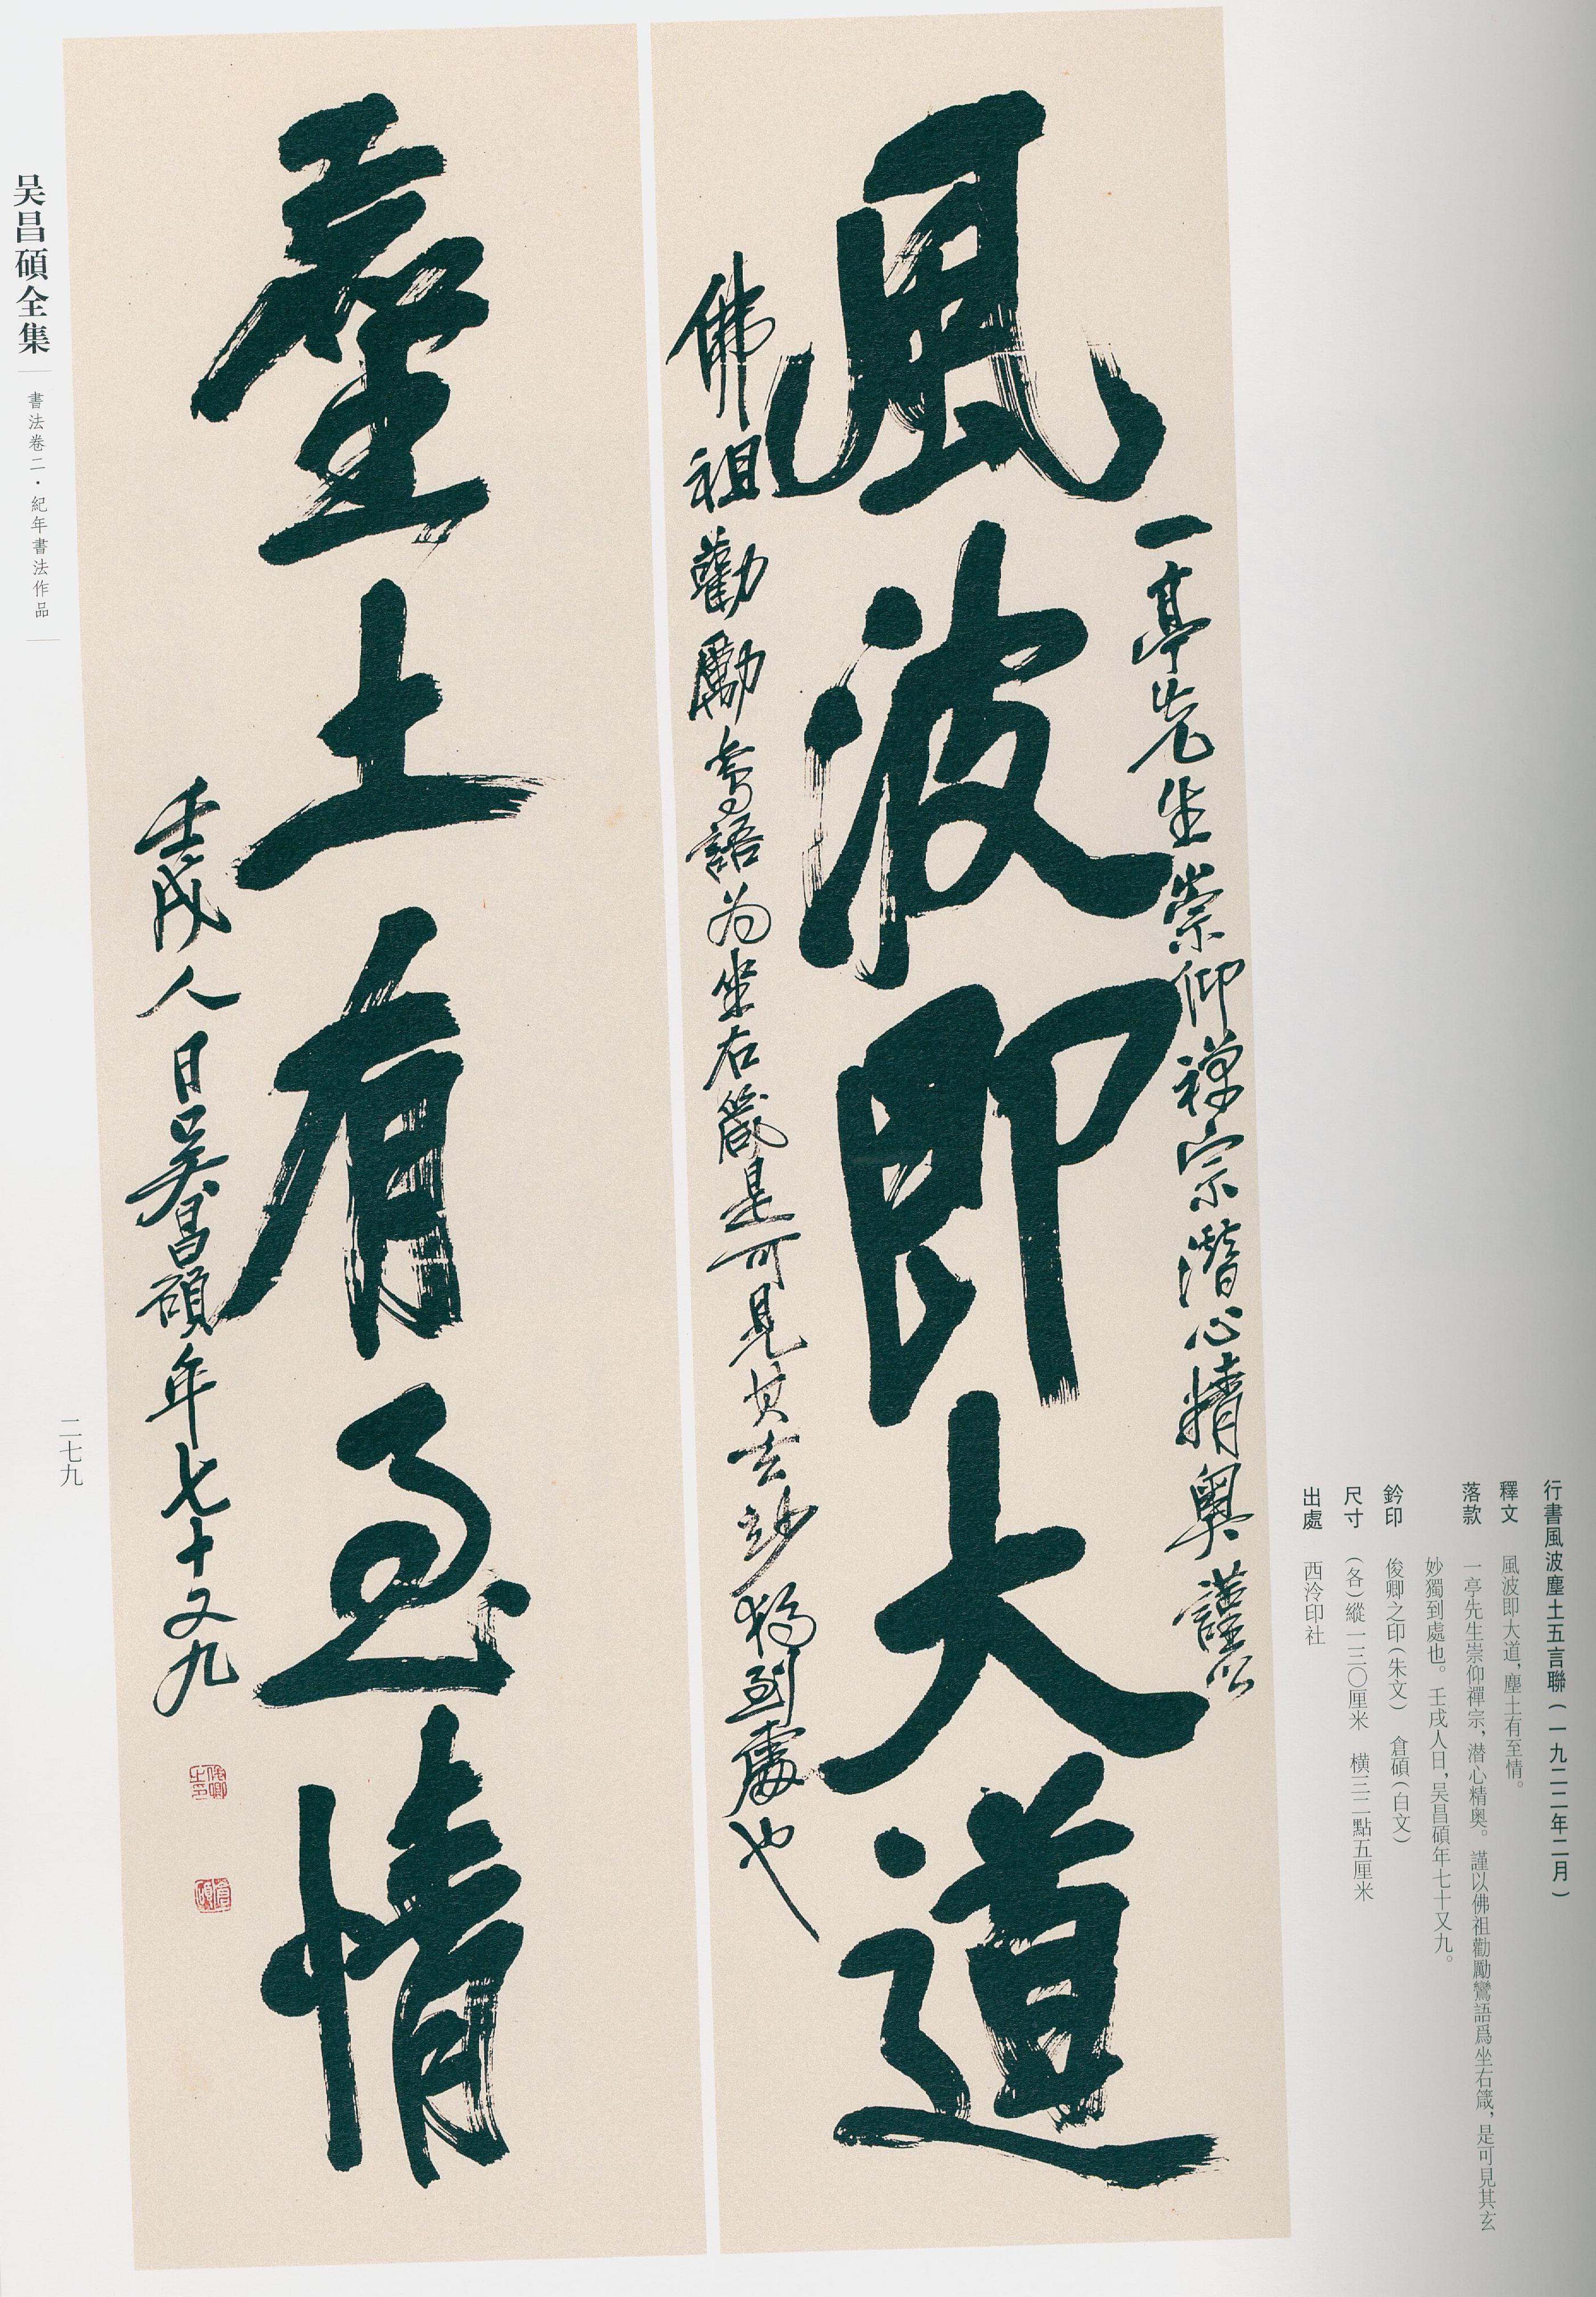 行書風波塵土五言聯（一九二二年二月）
釋文　風波即大道，塵土有至情。
落款　一亭先生崇仰禪宗，潛心精奧。謹以佛祖勸勵鸞語爲坐右箴，是可見其玄
妙獨到處也。壬戌人日，吴昌碩年七十又九。
鈐印　俊卿之印（朱文）　倉碩（白文）
尺寸　（各）縱一三〇厘米　橫三二點五厘米
出處　西泠印社
一亭先生崇仰禪宗潛心精奧謹以
風波即大道
佛祖勸勵鸞語为坐右箴是可見其玄妙獨到處也
塵土有至情
壬戌人日吴昌碩年七十又九
俊卿之印
倉碩
吴昌碩全集
書法卷二·紀年書法作品
二七九